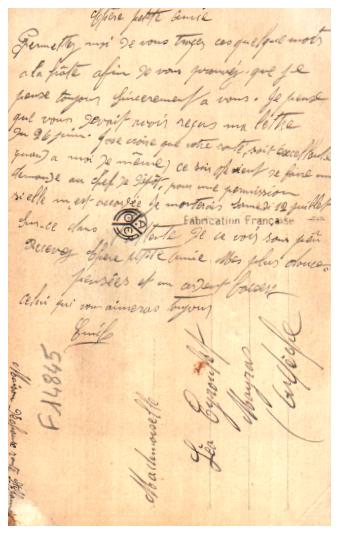 Chère petite Amie
Permettez moi de vous tracer ces quelques mots
a la hâte afin de vous prouvez que je
pense toujours sincèrement a vous. Je pense
que vous devait avoir reçus ma lettre
du 26 juin. J'ose croire que votre santé, soit excellente
quand a moi de même, ce soir je vient de faire une
demande au chef de dépôt, pour une permission
si elle m'est accordée je Samedi 12 juillet
dans Je ce vois sous peu
Recevez chère petite amie mes plus douces
pensées et un ardent baiser
celui qui vous aimeras toujours
Emile
Fabrication Française
F14845
Mademoiselle
Léa
Mayras
Ardèche